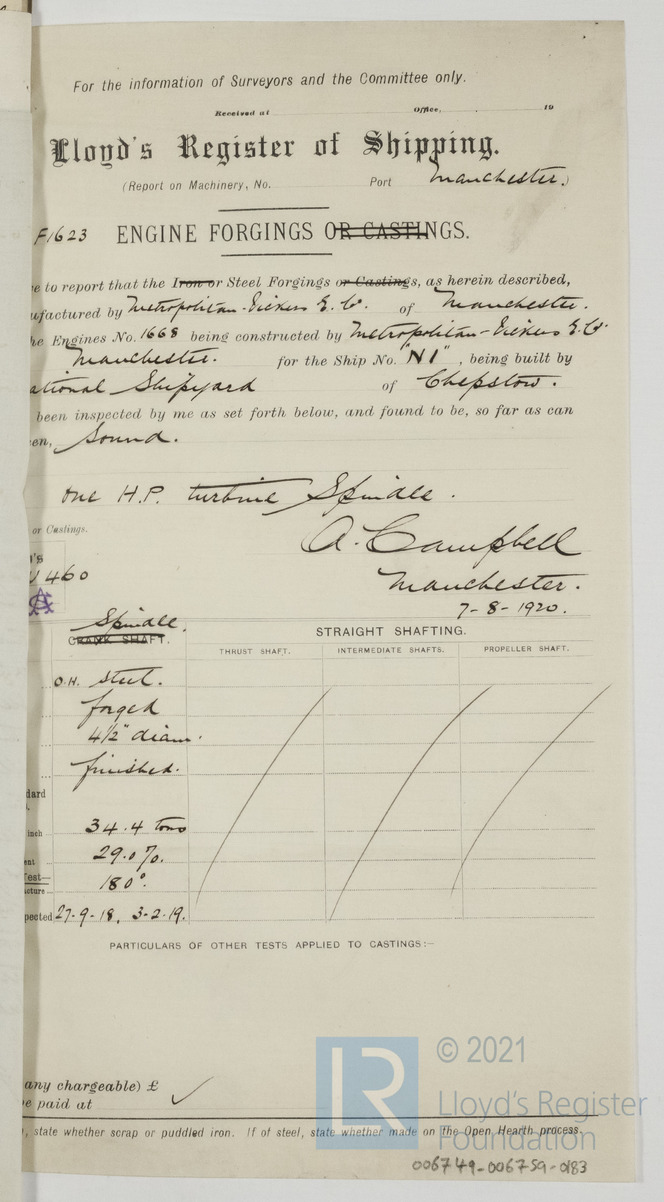 For the information of Surveyors and the Committee only.
Received at Office, 19
Lloyd's Register of Shipping.
(Report on Machinery, No. Port Manchester.)
F1623 ENGINE FORGINGS OR CASTINGS.
e to report that the Iron or Steel Forgings or Castings, as herein described,
ufactured by Metropolitan-Vickers E. Co. of Manchester.
he Engines No. 1668 being constructed by Metropolitan-Vickers E. Co.
Manchester. for the Ship No. "N1", being built by
ational Shipyard of Chepstow.
been inspected by me as set forth below, and found to be, so far as can
en, Sound.
One H.P. turbine Spindle.
or Castings.
A. Campbell
's
460
Manchester.
7-8-1920.
Spindle.
CRANK SHAFT.
STRAIGHT SHAFTING.
THRUST SHAFT. INTERMEDIATE SHAFTS. PROPELLER SHAFT.
O.H. Steel.
forged
4½" diam.
finished.
dard
inch 34.4 tons
ent 29.0%.
Test—
cture 180°.
pected 27-9-18, 3-2-19.
PARTICULARS OF OTHER TESTS APPLIED TO CASTINGS:—
any chargeable) £
e paid at
, state whether scrap or puddled iron. If of steel, state whether made on the Open Hearth process.
LR
© 2021
Lloyd's Register
Foundation
006749-006759-0183